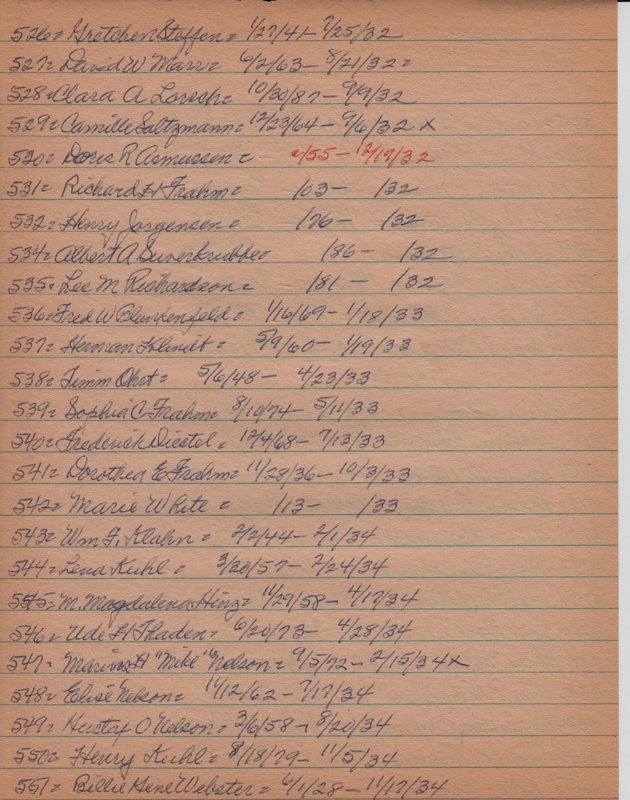 526= Gretchen Steffen= 1/27/41- 7/25/32
527= David W Marr= 6/2/63- 8/21/32=
528=Clara A Loresch= 10/30/87- 9/9/32
529=Camille Saltzmann= 12/23/64- 9/6/32 x
530= Doris R Asmussen= /55- 12/19/32
531= Richard H Frahm= /03- /32
532= Henry Jorgensen= /76- /32
534= Albert A Suverkrubbe= /86- /32
535= Lee M Richardson= /81- /32
536=Fred W Blunkenfeld= 1/16/69- 1/18/33
537= Herman Klindt= 5/9/60- 1/19/33
538= Timm Ohrt= 5/6/48- 4/23/33
539= Sophia C Frahm= 8/10/74- 5/11/33
540= Frederick Diestel= 12/4/68- 7/13/33
541= Dorothea E Frahm= 11/28/36- 10/3/33
542= Marie White= /13- /33
543= Wm F. Klahn= 2/2/44- 2/1/34
544= Lena Kuhl= 3/20/57- 2/24/34
545= M. Magdalena Hinz= 11/29/58- 4/17/34
546= Ude H Thaden= 6/20/73- 4/28/34
547= Marius H "Mike" Nelson= 9/5/72- 2/15/34x
548= Elise Nelson= 11/12/62- 7/17/34
549= Gustaf O Nelson= 3/6/58- 8/20/34
550= Henry Kuhl= 8/18/79- 11/5/34
551= Billie Gene Webster= 6/1/28- 11/17/34